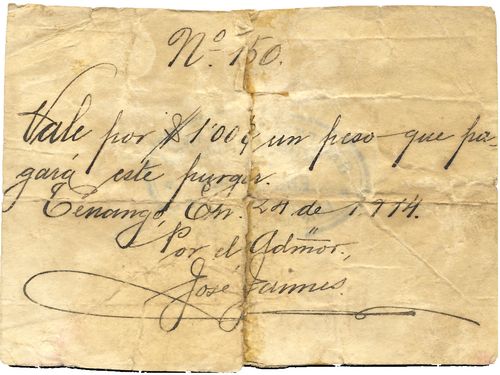 Nº 150.
Vale por $1'00¢ un peso que pa-
gará este
Tenango, En. 24 de 1914.
Por el Admor.,
José Jaimes.